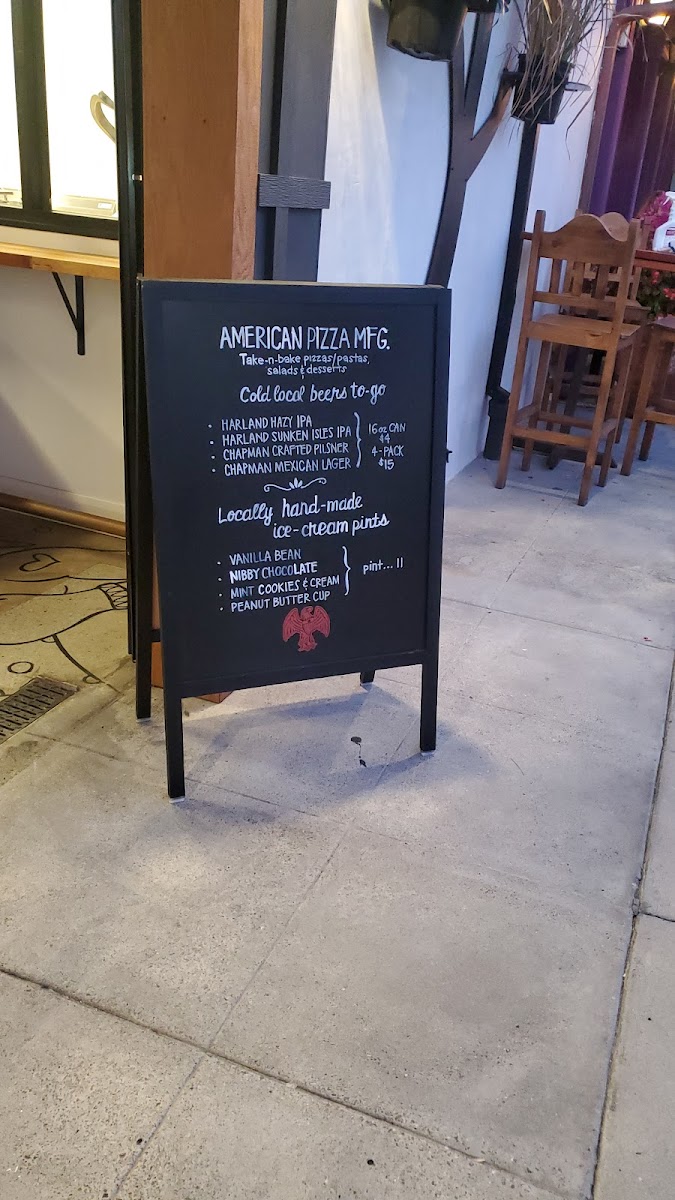 AMERICAN PIZZA MFG.
Take-n-bake pizzas/pastas,
salads & desserts
Cold local beers to-go
• HARLAND HAZY IPA
• HARLAND SUNKEN ISLES IPA
• CHAPMAN CRAFTED PILSNER
• CHAPMAN MEXICAN LAGER
16oz CAN
$4
4-PACK
$15
Locally hand-made
ice-cream pints
• VANILLA BEAN
• NIBBY CHOCOLATE
• MINT COOKIES & CREAM
• PEANUT BUTTER CUP
pint... 11